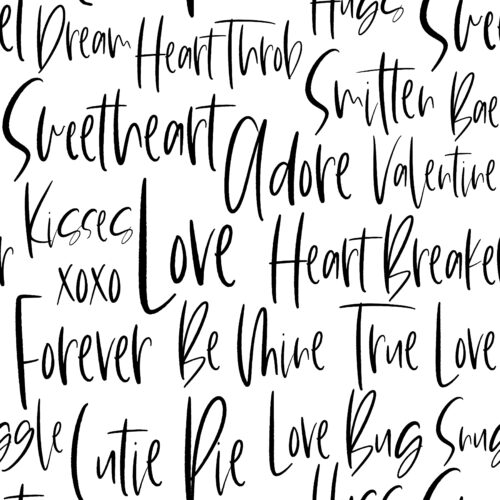 Hugs
et Dream Heart Throb Swe
Smitten Bae
Sweetheart Adore Valentine
Kisses
xoxo Love Heart Breake
Forever Be Mine True Love
ggle Cutie Pie Love Bug Snug
Hugs Swe